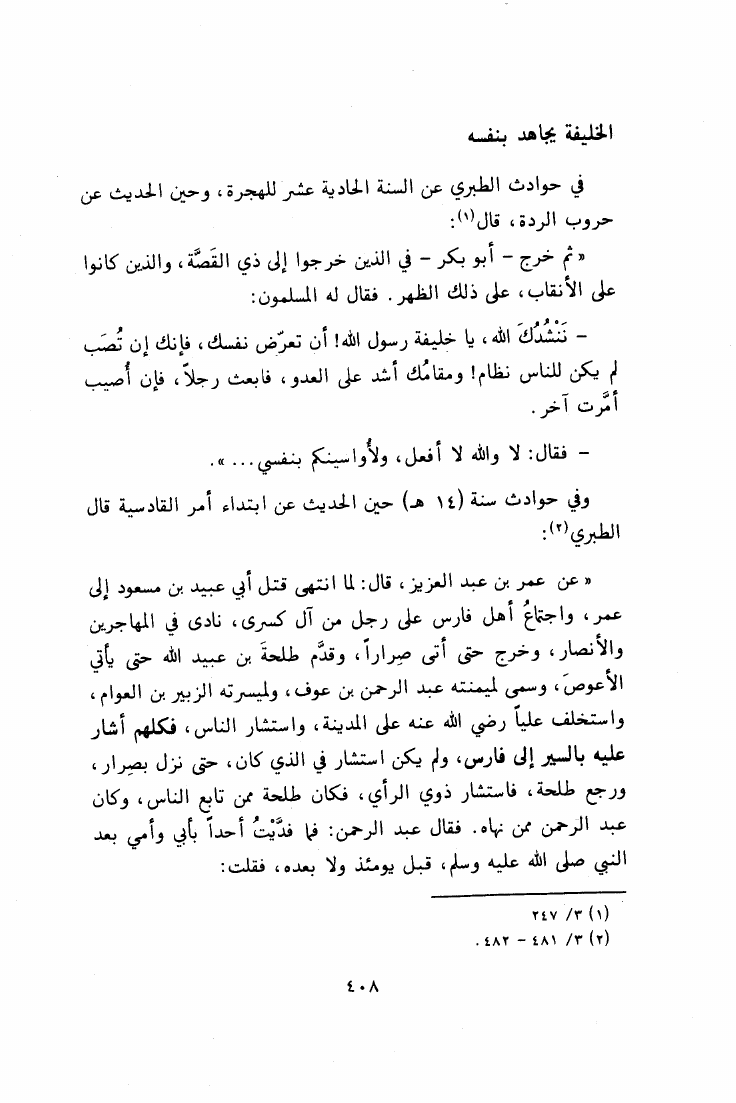 الخليفة يجاهد بنفسه
في حوادث الطبري عن السنة الحادية عشر للهجرة، وحين الحديث عن
حروب الردة، قال(١):
«ثم خرج - أبو بكر - في الذين خرجوا إلى ذي القَصَّة، والذين كانوا
على الأنقاب، على ذلك الظهر. فقال له المسلمون:
- نَنْشُدُكَ الله، يا خليفة رسول الله! أن تعرّض نفسك، فإنك إن تُصَب
لم يكن للناس نظام! ومقامُك أشد على العدو، فابعث رجلاً، فإن أُصيب
أمَّرت آخر.
- فقال: لا والله لا أفعل، ولأُواسينكم بنفسي...».
وفي حوادث سنة (١٤ هـ) حين الحديث عن ابتداء أمر القادسية قال
الطبري(٢):
«عن عمر بن عبد العزيز، قال: لما انتهى قتل أبي عبيد بن مسعود إلى
عمر، واجتماعُ أهل فارس على رجل من آل كسرى، نادى في المهاجرين
والأنصار، وخرج حتى أتى صِراراً، وقدَّم طلحةَ بن عبيد الله حتى يأتي
الأعوصَ، وسمى لميمنته عبد الرحمن بن عوف، ولميسرته الزبير بن العوام،
واستخلف علياً رضي الله عنه على المدينة، واستشار الناس، فكلهم أشار
عليه بالسير إلى فارس، ولم يكن استشار في الذي كان، حتى نزل بصِرار،
ورجع طلحة، فاستشار ذوي الرأي، فكان طلحة ممن تابع الناس، وكان
عبد الرحمن ممن نهاه. فقال عبد الرحمن: فما فدَّيْتُ أحداً بأبي وأمي بعد
النبي صلى الله عليه وسلم، قبل يومئذ ولا بعده، فقلت:
(١) ٣/ ٢٤٧
(٢) ٣/ ٤٨١ - ٤٨٢.
٤٠٨